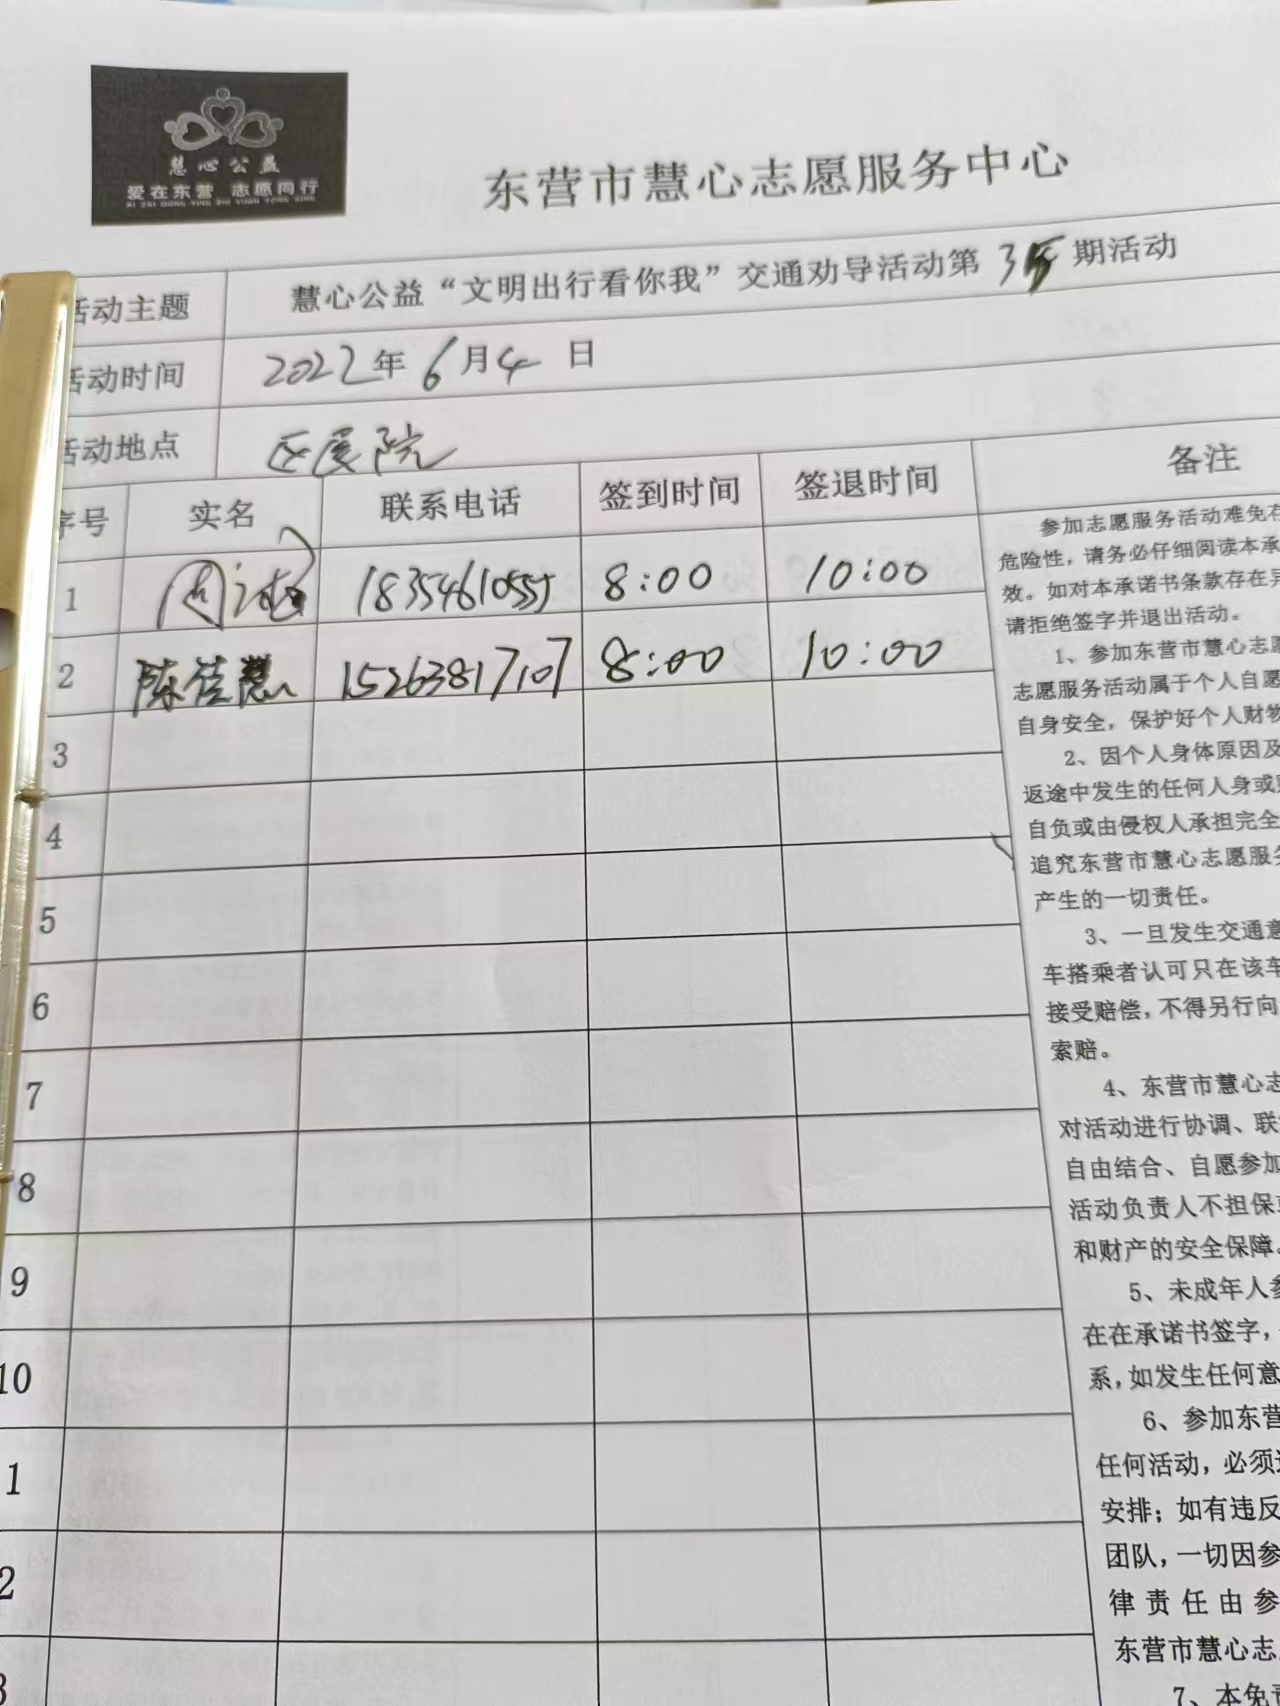 慧心公益
爱在东营 志愿同行
AI ZAI DONG YING ZHI YUAN TONG XING
东营市慧心志愿服务中心
活动主题 慧心公益“文明出行看你我”交通劝导活动第3期活动
活动时间 2022年6月4日
活动地点 区医院
序号 实名 联系电话 签到时间 签退时间 备注
1 周 18354610555 8:00 10:00
2 陈佳慧 15263817107 8:00 10:00
3
4
5
6
7
8
9
10
1
2
3
参加志愿服务活动难免存
危险性，请务必仔细阅读本承
效。如对本承诺书条款存在异
请拒绝签字并退出活动。
1、参加东营市慧心志愿
志愿服务活动属于个人自愿
自身安全，保护好个人财物
2、因个人身体原因及
返途中发生的任何人身或财
自负或由侵权人承担完全
追究东营市慧心志愿服务
产生的一切责任。
3、一旦发生交通意
车搭乘者认可只在该车
接受赔偿，不得另行向
索赔。
4、东营市慧心志
对活动进行协调、联
自由结合、自愿参加
活动负责人不担保
和财产的安全保障。
5、未成年人参
在在承诺书签字，
系，如发生任何意
6、参加东营
任何活动，必须
安排；如有违反
团队，一切因参
律责任由参
东营市慧心志
7、本免责